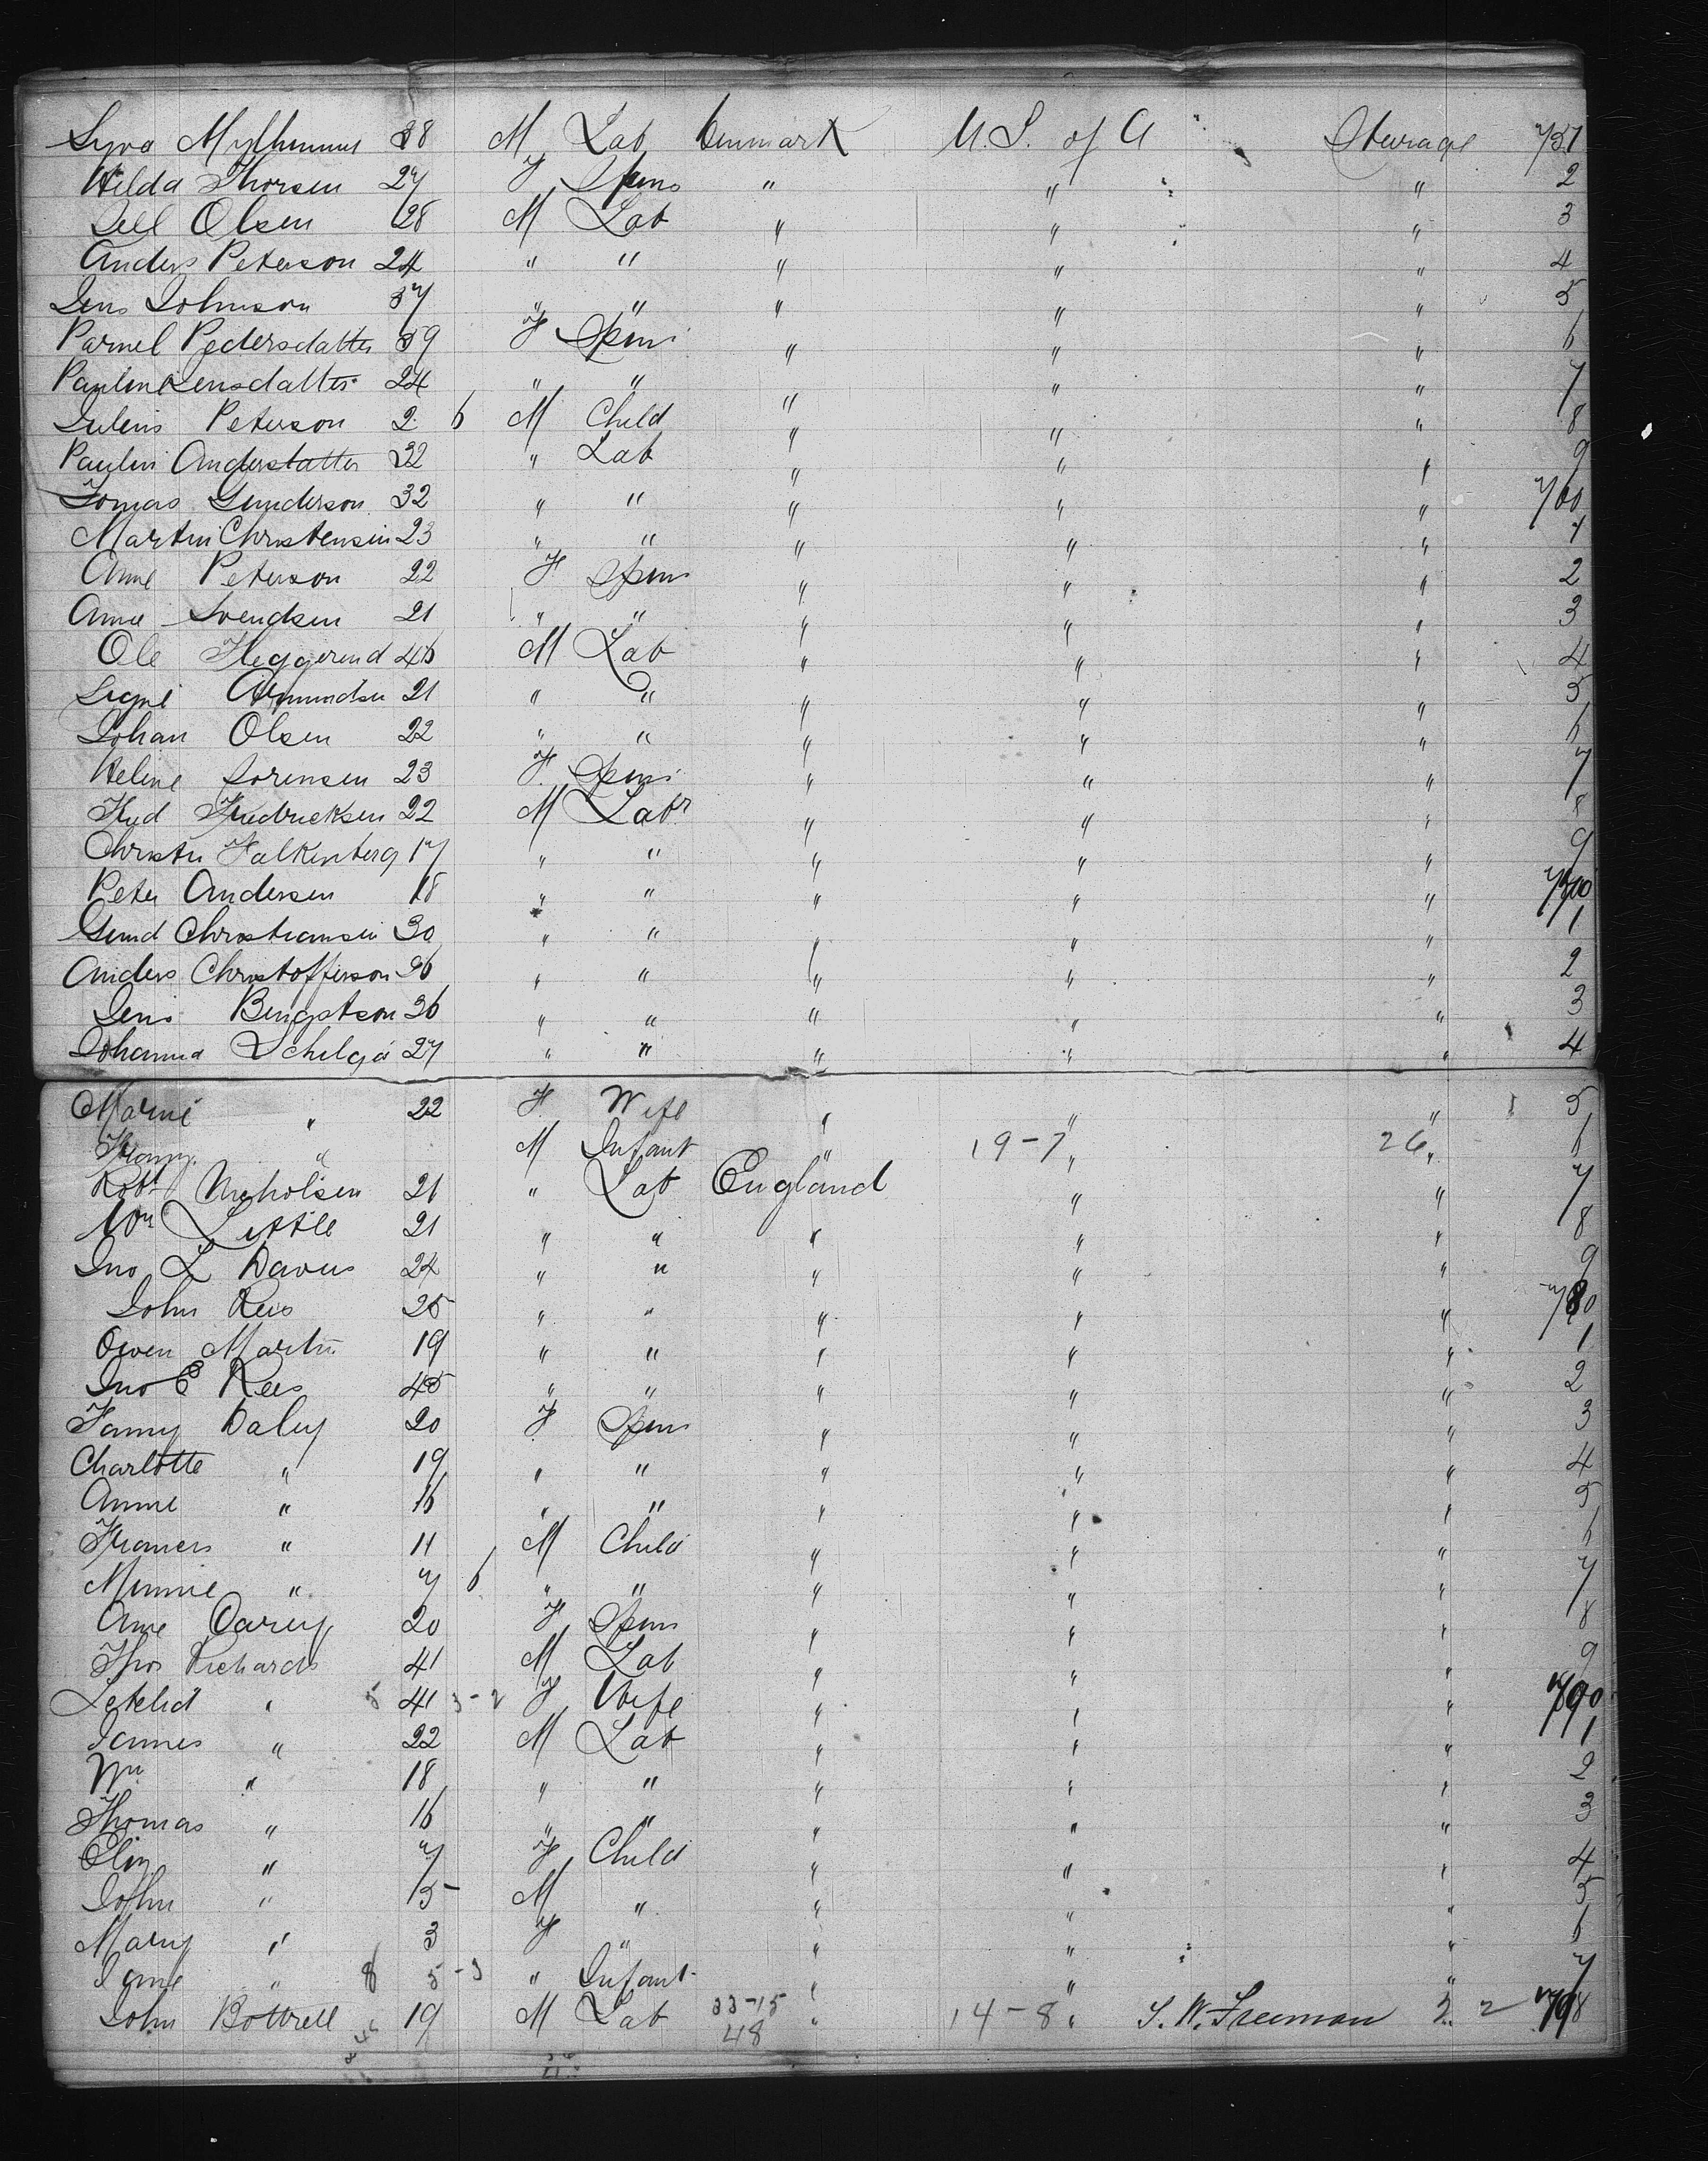 38 M Lab Denmark U.S. of A Steerage 751
Hilda Thorsen 27 F Spins " " " 2
Olsen 28 M Lab " " " 3
Anders Peterson 24 " " " " " 4
Jens Johnson 37 " " " " " 5
Parnel Pedersdatter 39 F Spins " " " 6
Pauline Jensdatter 24 " " " " " 7
Julius Peterson 2 6 M Child " " " 8
Paulin Anderstatter 32 " Lab " " " 9
Tomas Gunderson 32 " " " " " 760
Martin Christensen 23 " " " " " 1
Anne Peterson 22 F Spins " " " 2
Anne Svendsen 21 " " " " " 3
Ole Heggerend 46 M Lab " " " 4
Signe Amundsen 21 " " " " " 5
Johan Olsen 22 " " " " " 6
Heline Sorensen 23 F Spins " " " 7
Fred Fredricksen 22 M Labr " " " 8
Christn Falkenberg 17 " " " " " 9
Peter Andersen 18 " " " " " 770
Gund Christiansen 30 " " " " " 1
Anders Christofferson 36 " " " " " 2
Jens Bengtson 36 " " " " " 3
Johanna 27 " " " " " 4
Marie " 22 F Wife " " " 5
" M Infant " 19-7 " 26 " 6
Robt Nicholsen 21 " Lab England " " 7
Wm Little 21 " " " " " 8
Jno L Davis 24 " " " " " 9
John Rees 25 " " " " " 780
Owen Martin 19 " " " " " 1
Jno E Rees 45 " " " " " 2
Fanny Daley 20 F Spins " " " 3
Charlotte " 19 " " " " " 4
Annie " 16 " " " " " 5
Francis " 11 M Child " " " 6
Minnie " 7 6 " " " " " 7
Ane Carey 20 F Spins " " " 8
Thos Richards 41 M Lab " " " 9
" 5 41 3-2 F Wife " " " 790
James " 22 M Lab " " " 1
Wm " 18 " " " " " 2
Thomas " 16 " " " " " 3
Elin " 7 F Child " " " 4
John " 5 M " " " " 5
Mary " 3 F " " " " 6
Jane " 8 5-3 " Infant " " " 7
John Bottrell 19 M Lab 33-15 " 14-8 " S. W. Freeman 2 2 798
48